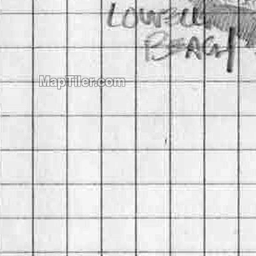 LOWELL
BEACH
MapTiler.com